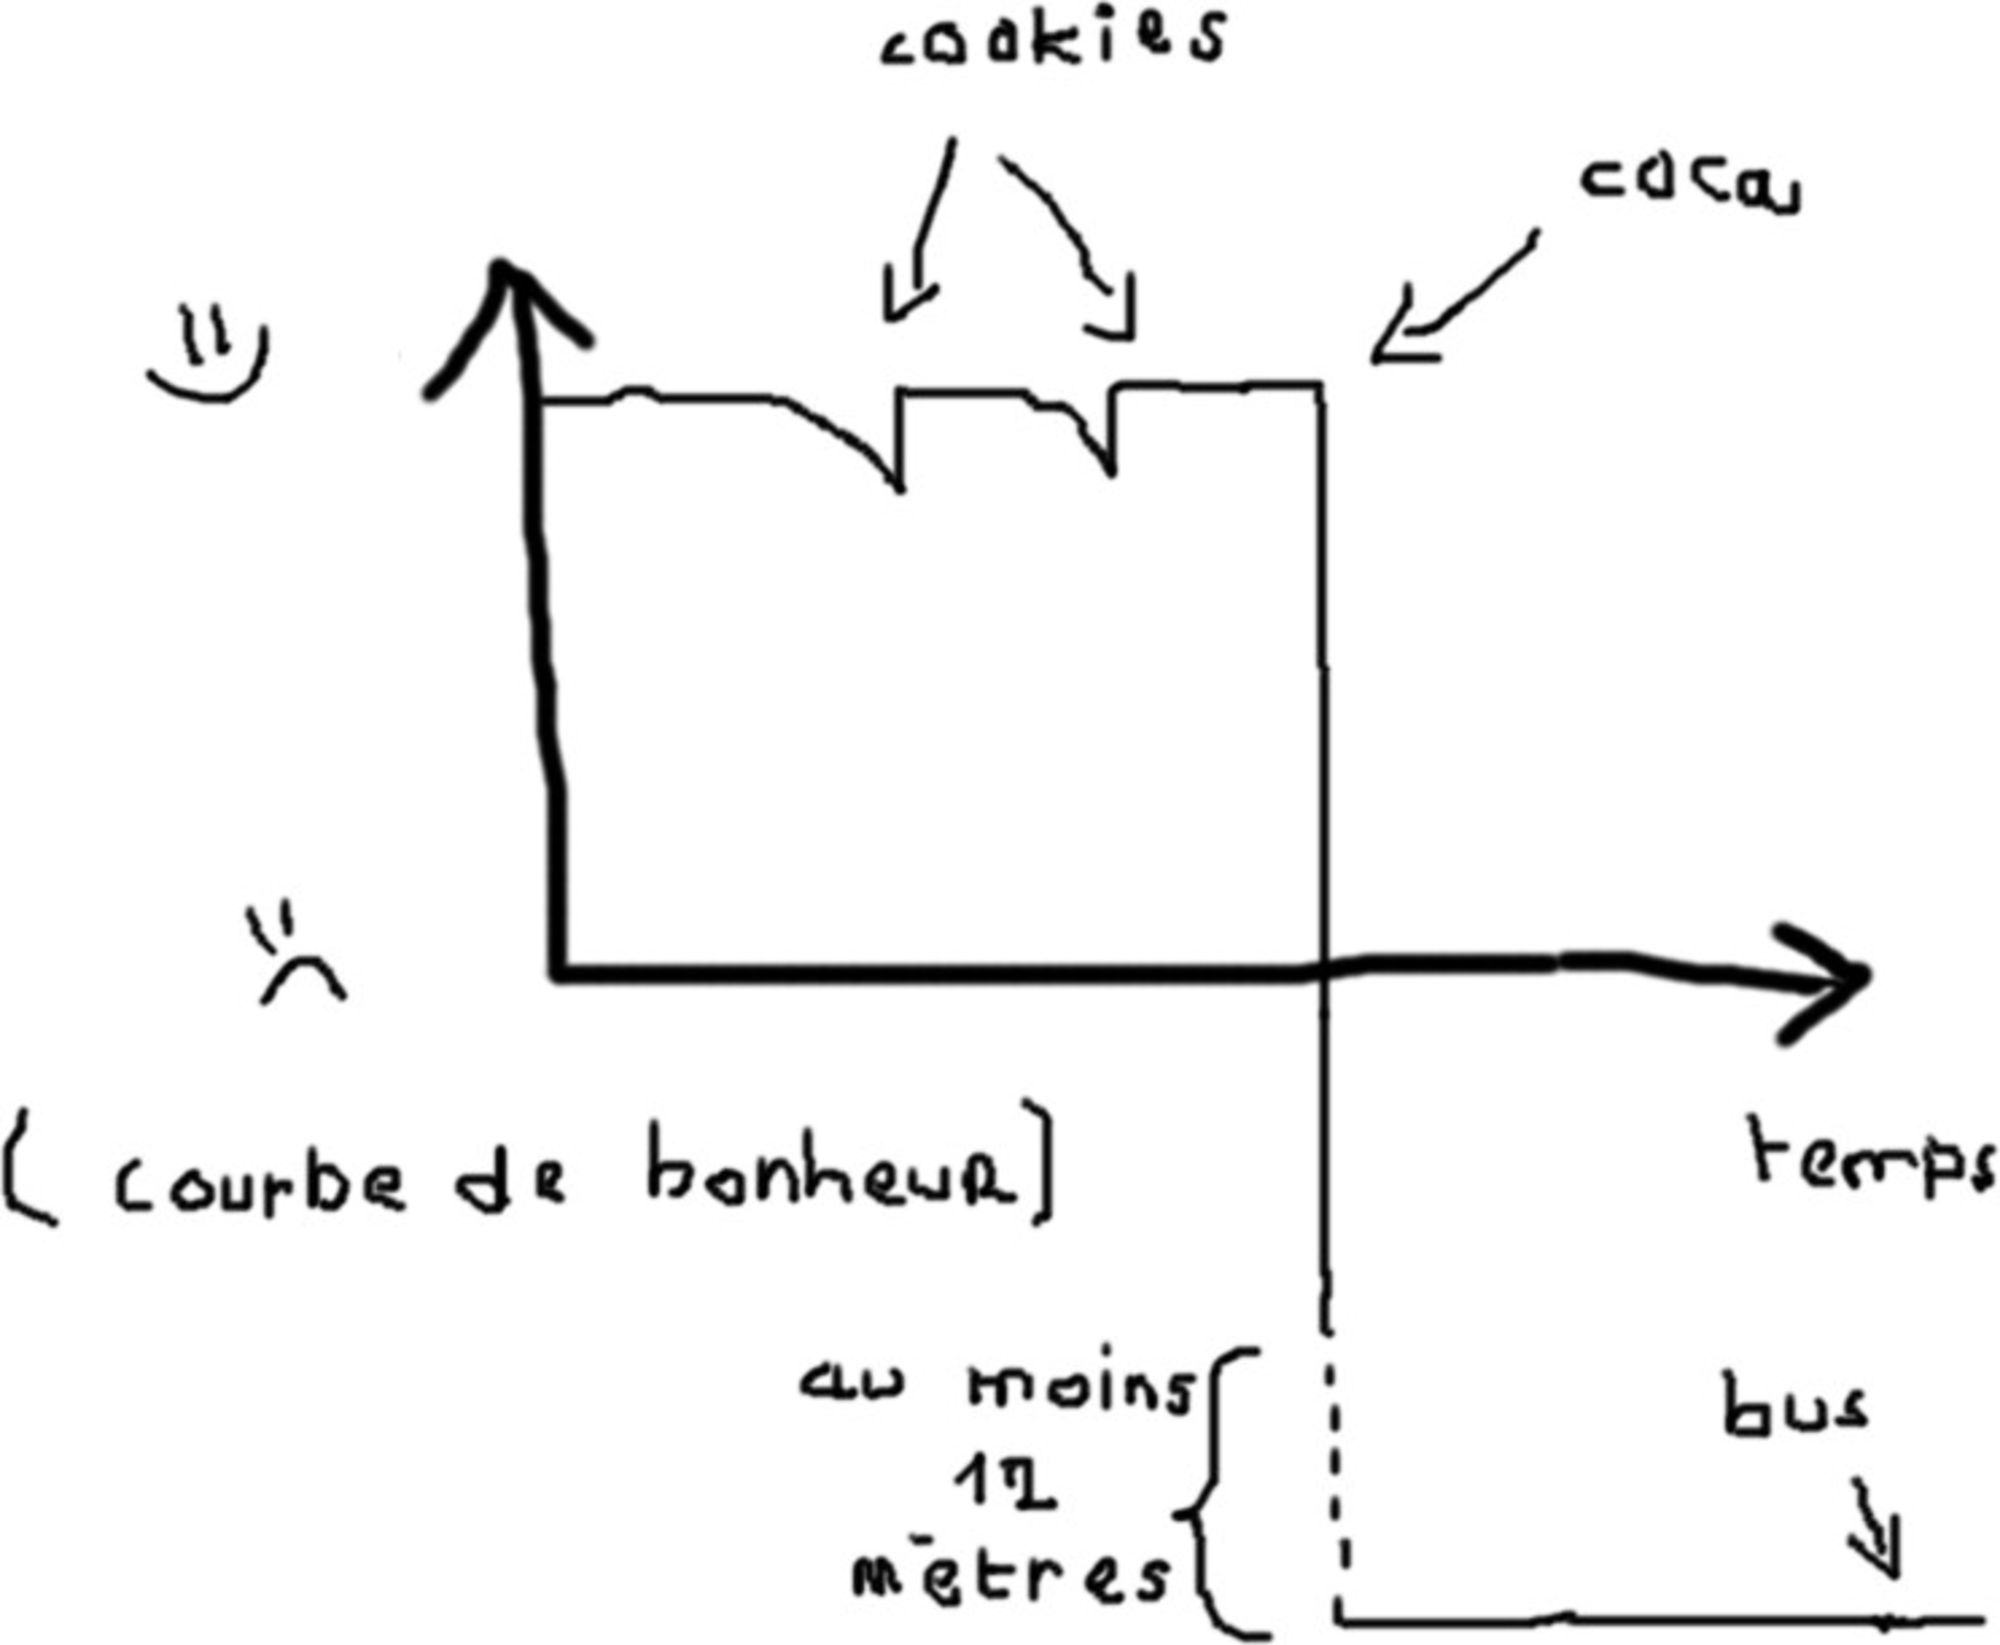 cookies
coca
(courbe de bonheur)
temps
au moins
12
mètres
bus